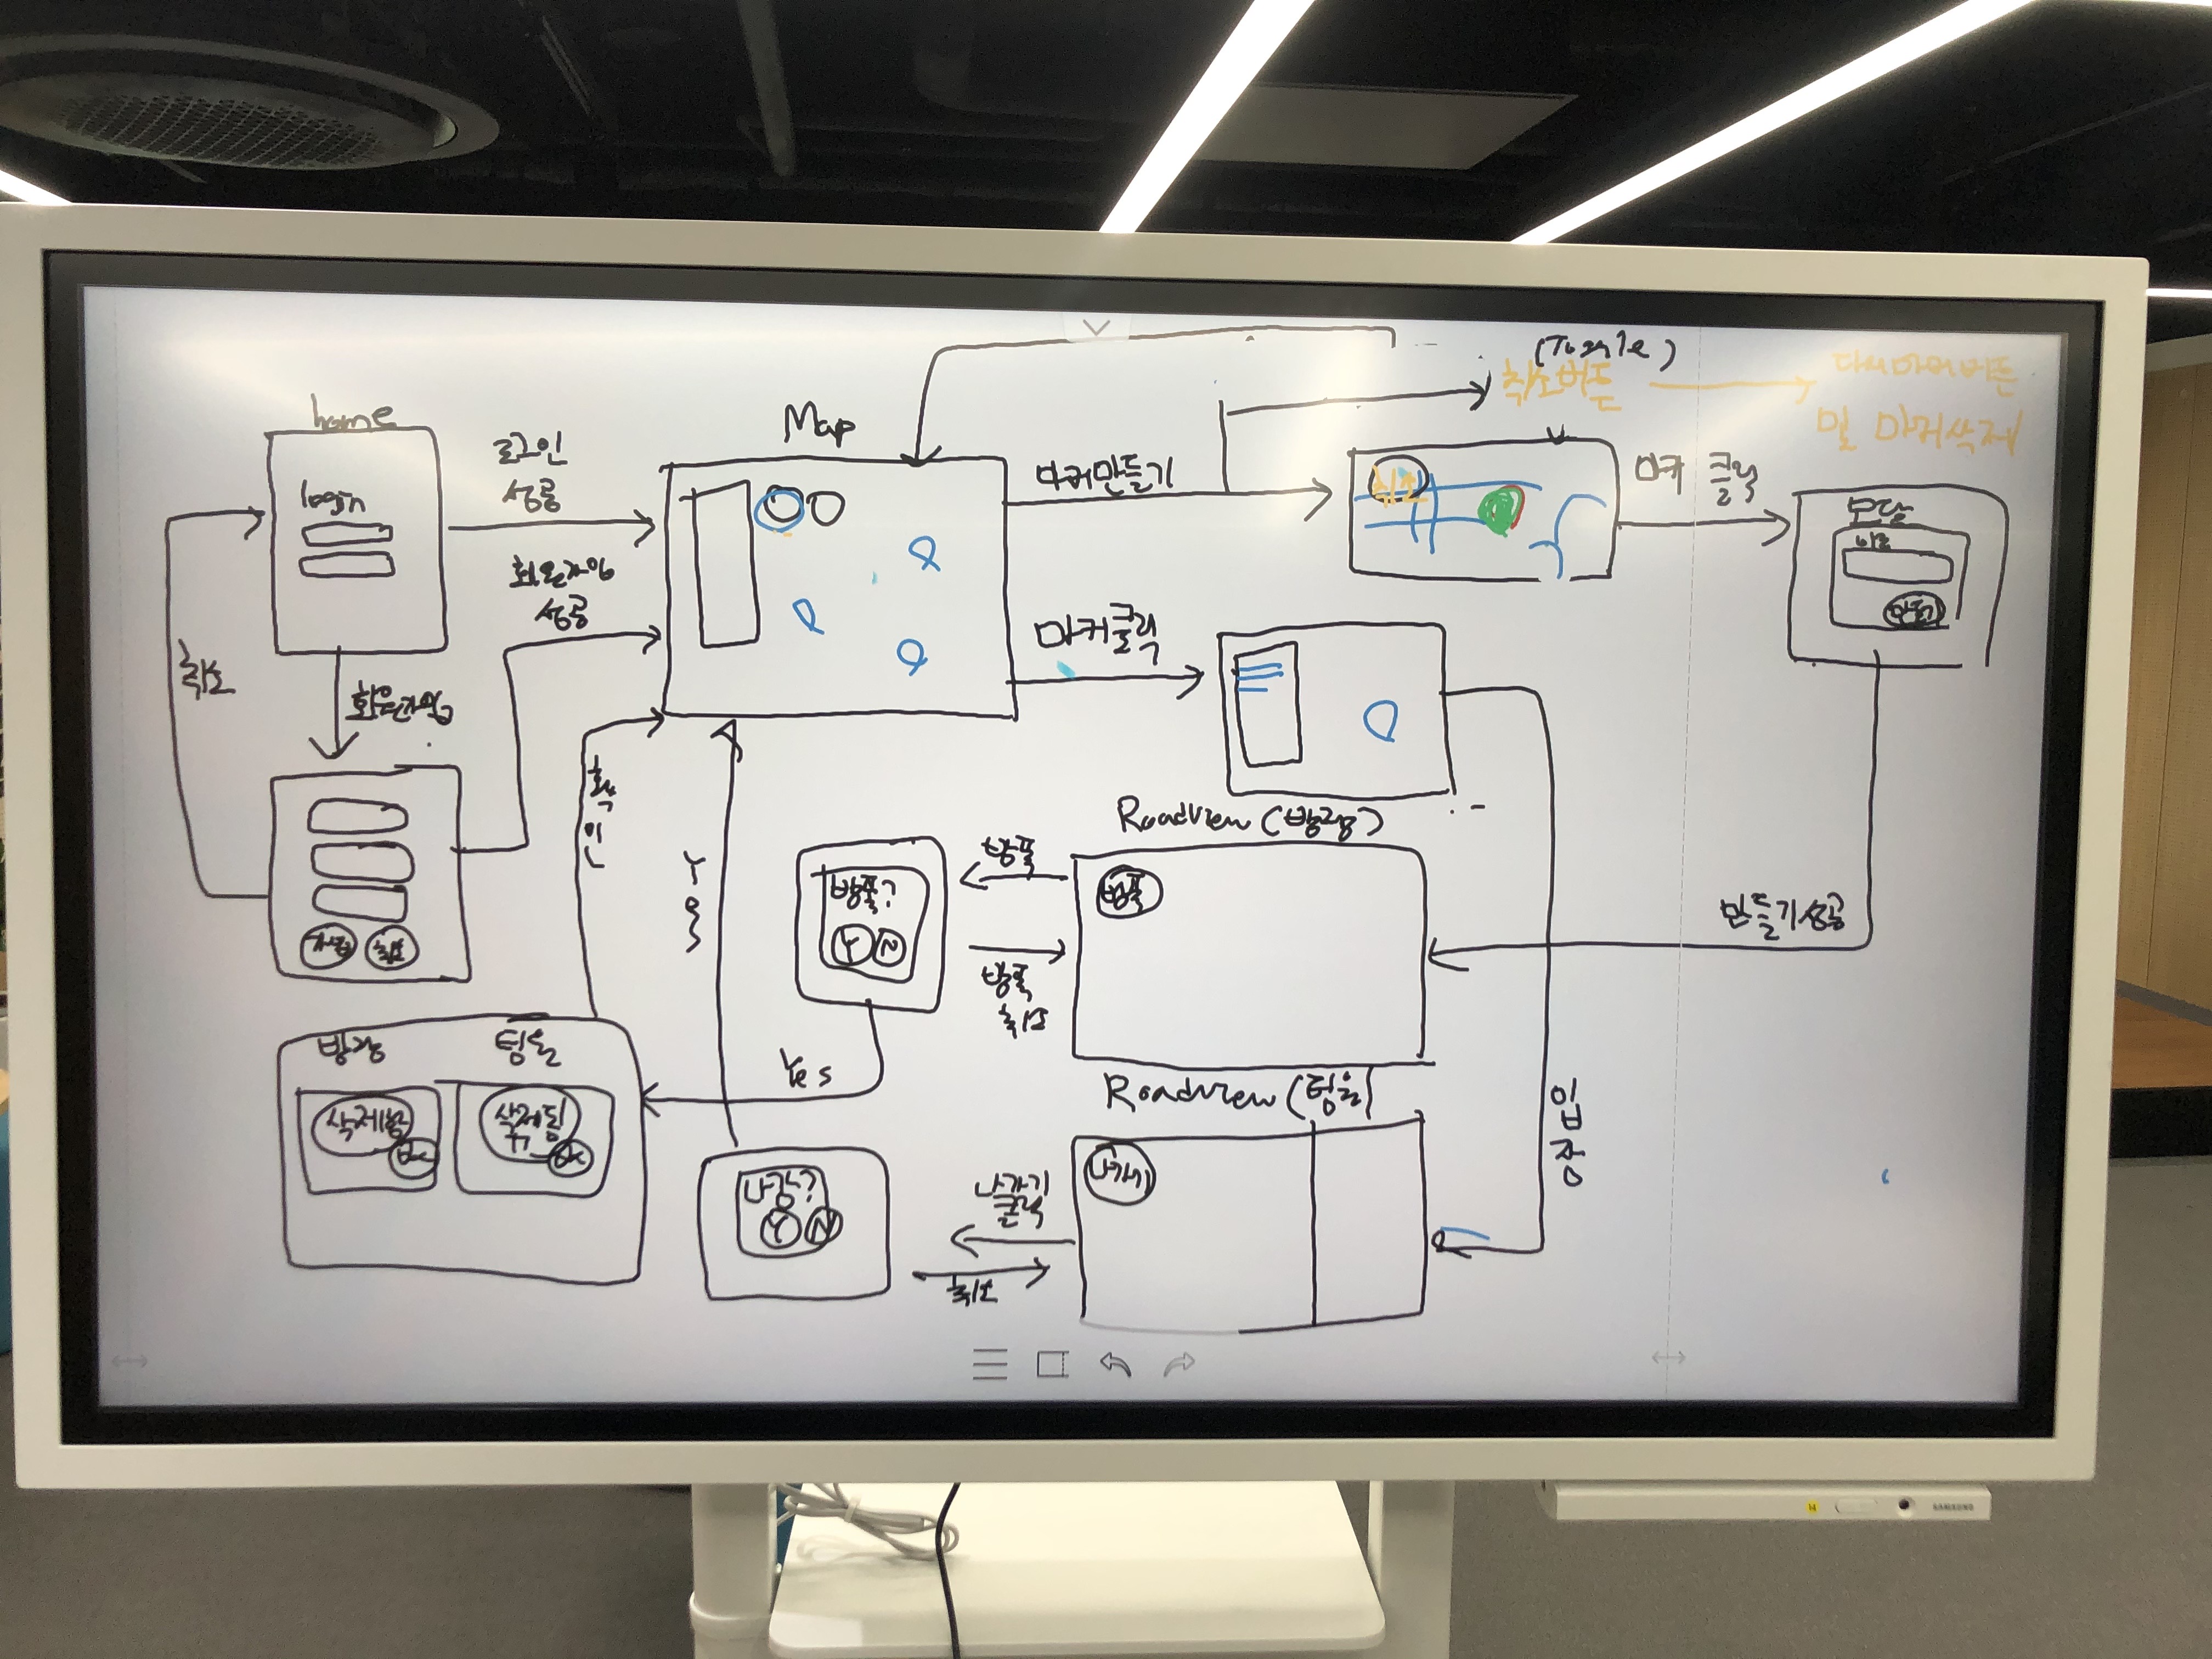 home
login
로그인
성공
회원가입
성공
취소
회원가입
가입
취소
Map
마커만들기
마커클릭
(Toggle)
취소버튼
다시마커버튼
및 마커삭제
취소
마커 클릭
모달
만들기
만들기성공
입장
Roadview (방장)
방폭
방폭
방폭?
Y N
방폭
취소
Yes
확인
Yes
방장
팀원
삭제됨
OK
삭제됨
ㅜㅜ
OK
Roadview (팀원)
나가기
나가기
클릭
나감?
Y N
취소
SAMSUNG